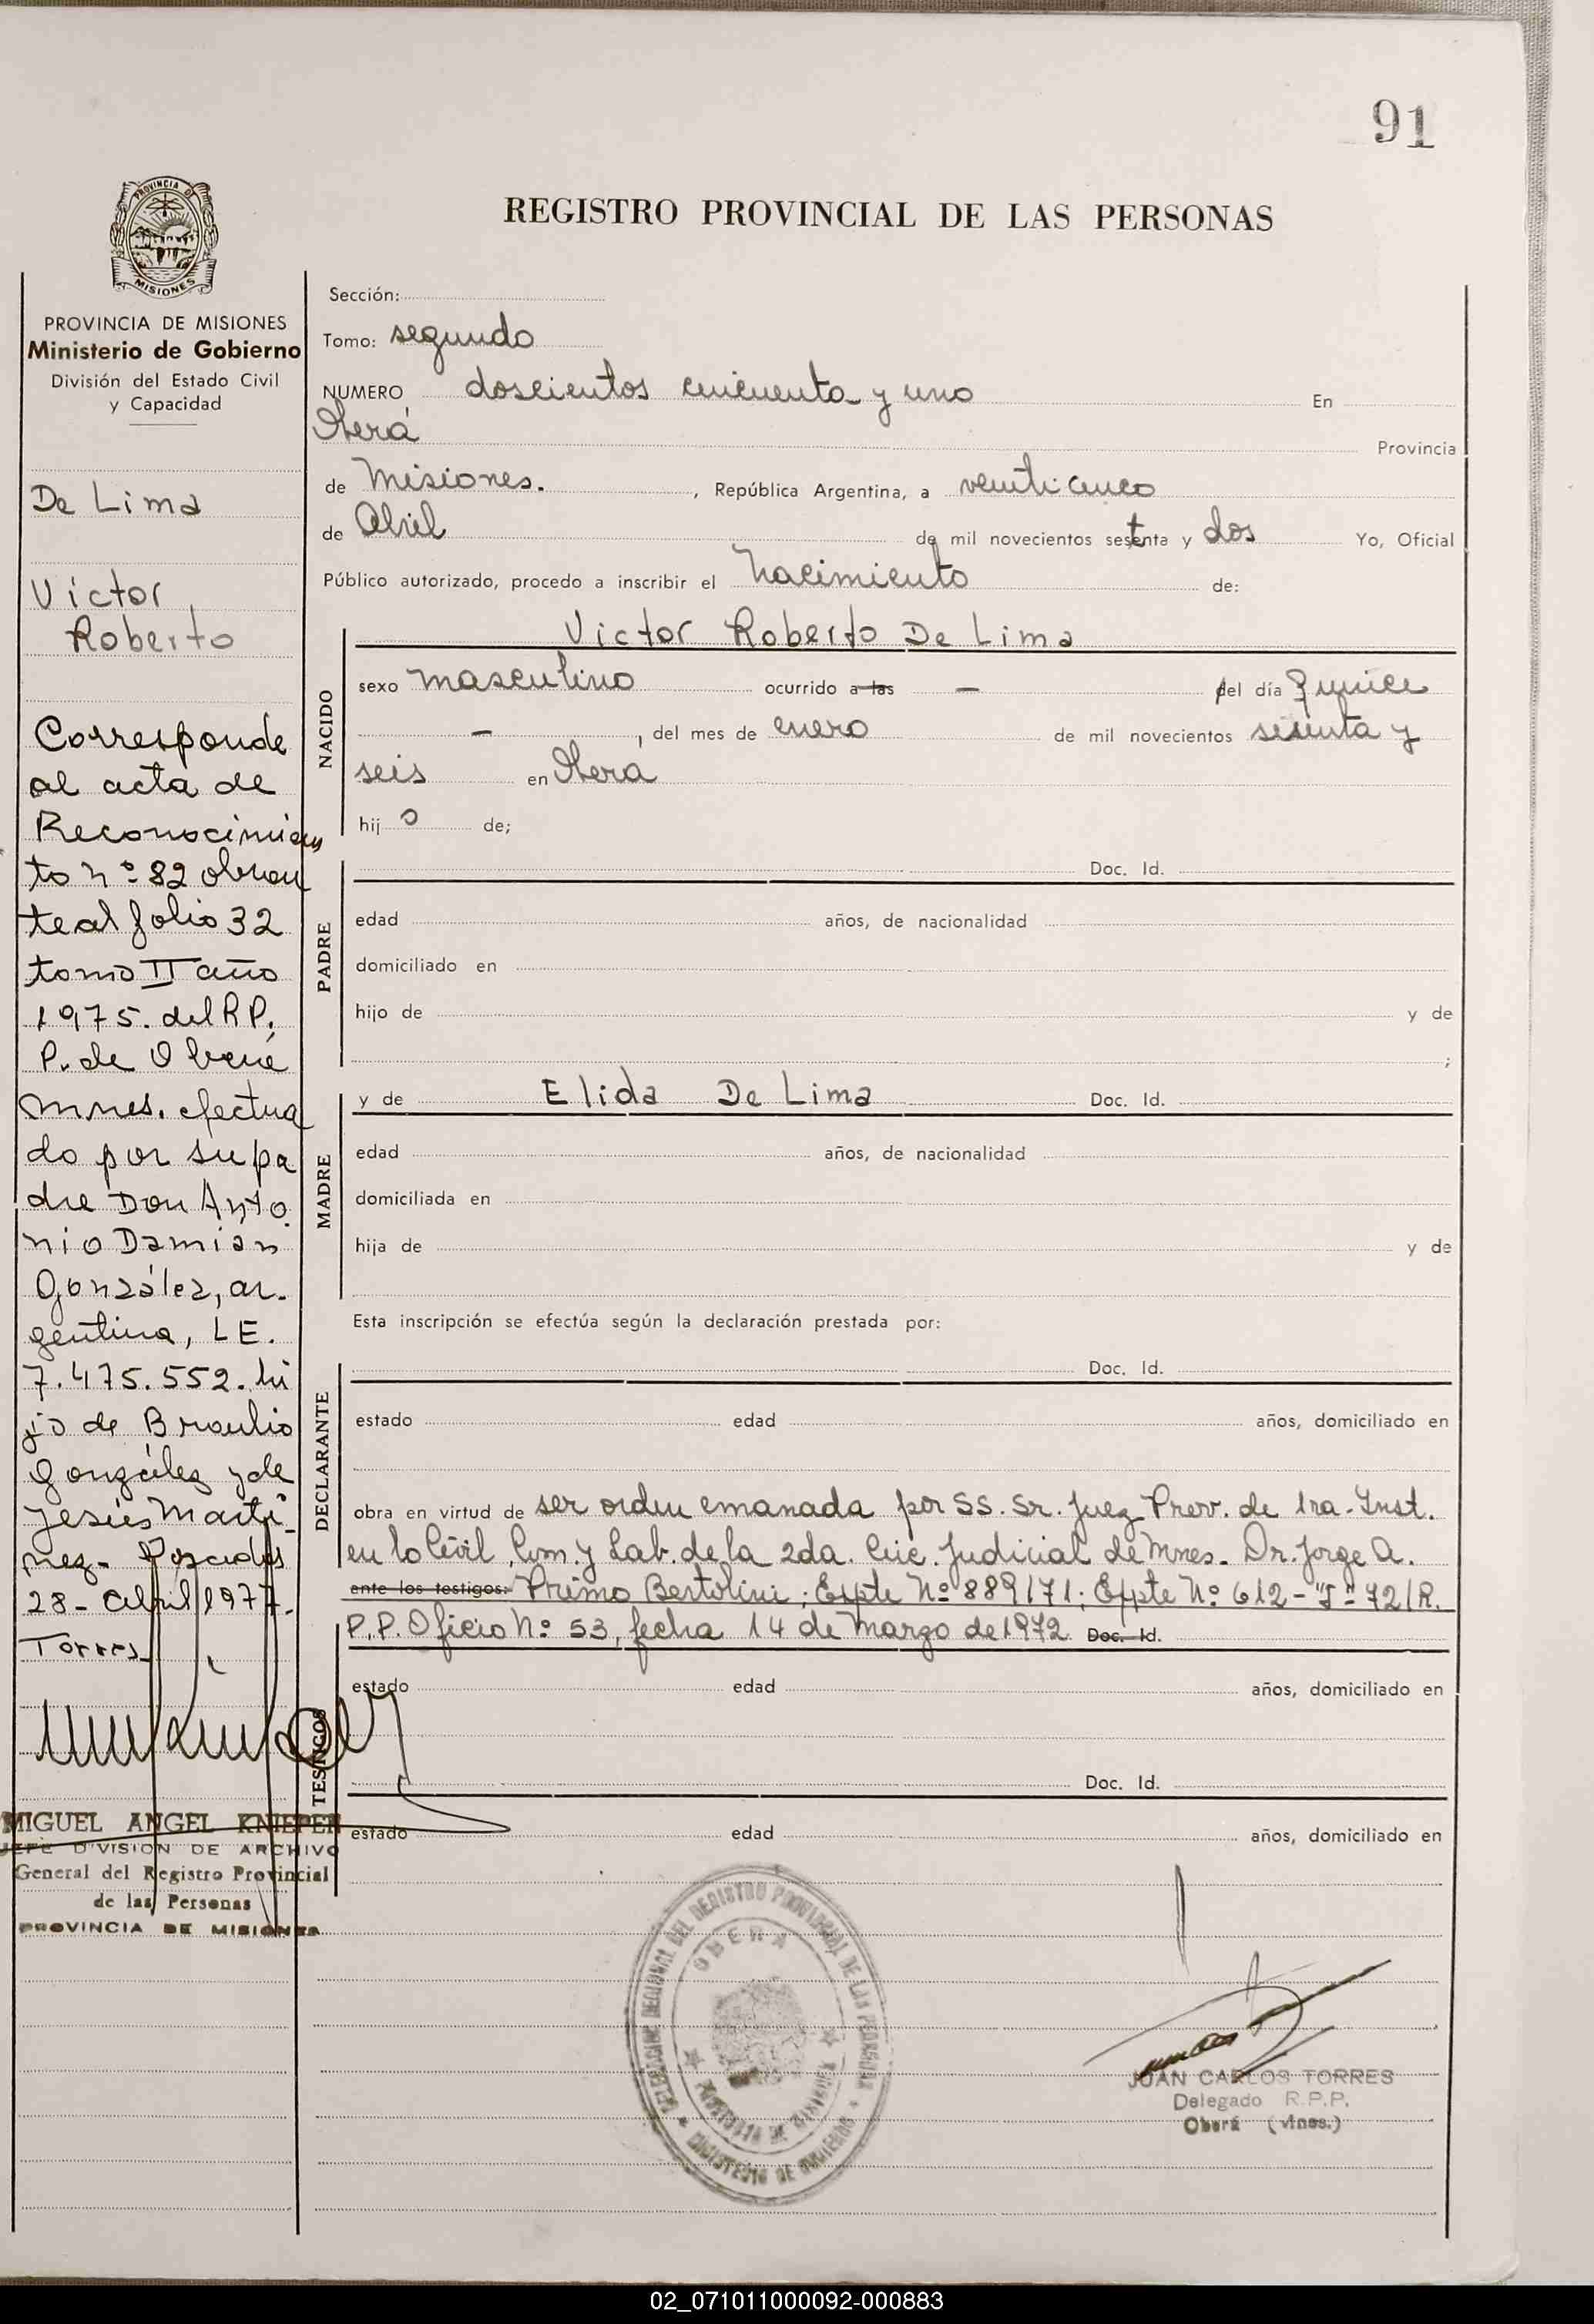 91
PROVINCIA DE
MISIONES
REGISTRO PROVINCIAL DE LAS PERSONAS
PROVINCIA DE MISIONES
Ministerio de Gobierno
División del Estado Civil
y Capacidad
De Lima
Victor
Roberto
Corresponde
al acta de
Reconocimien
to nº 82 obran
te al folio 32
tomo II año
1975. del R P.
P. de Oberá
Mnes. efectua
do por su pa
dre Don Anto
nio Damián
González, ar.
gentino, LE.
7.475.552. hi
jo de Braulio
González y de
Jesús Martí-
nez- Posadas
28- Abril 1977.
Torres
MIGUEL ANGEL KNIEPER
JEFE DIVISION DE ARCHIVO
General del Registro Provincial
de las Personas
PROVINCIA DE MISIONES
Sección:
Tomo: segundo
NUMERO doscientos cincuenta y uno En
Oberá Provincia
de Misiones. , República Argentina, a veinticinco
de Abril de mil novecientos setenta y dos Yo, Oficial
Público autorizado, procedo a inscribir el Nacimiento de:
Victor Roberto De Lima
NACIDO
sexo masculino ocurrido a las — del día Quince
— , del mes de enero de mil novecientos sesenta y
seis en Oberá
hij o de;
Doc. Id.
PADRE
edad años, de nacionalidad
domiciliado en
hijo de y de
;
y de Elida De Lima Doc. Id.
MADRE
edad años, de nacionalidad
domiciliada en
hija de y de
Esta inscripción se efectúa según la declaración prestada por:
Doc. Id.
DECLARANTE
estado edad años, domiciliado en
obra en virtud de ser orden emanada por SS. Sr. Juez Prev. de 1ra. Inst.
en lo Civil, Com. y Lab. de la 2da. Circ. Judicial de Mnes. Dr. Jorge A.
ante los testigos: Primo Bertolini; Expte Nº 889/71; Expte Nº 612-"J"-72/R.
P.P. Oficio Nº 53, fecha 14 de Marzo de 1972 Doc. Id.
TESTIGOS
estado edad años, domiciliado en
Doc. Id.
estado edad años, domiciliado en
DELEGACION REGIONAL DEL REGISTRO PROVINCIAL DE LAS PERSONAS
OBERA
PROVINCIA DE MISIONES
MINISTERIO DE GOBIERNO
JUAN CARLOS TORRES
Delegado R.P.P.
Oberá (Mnes.)
02_071011000092-000883